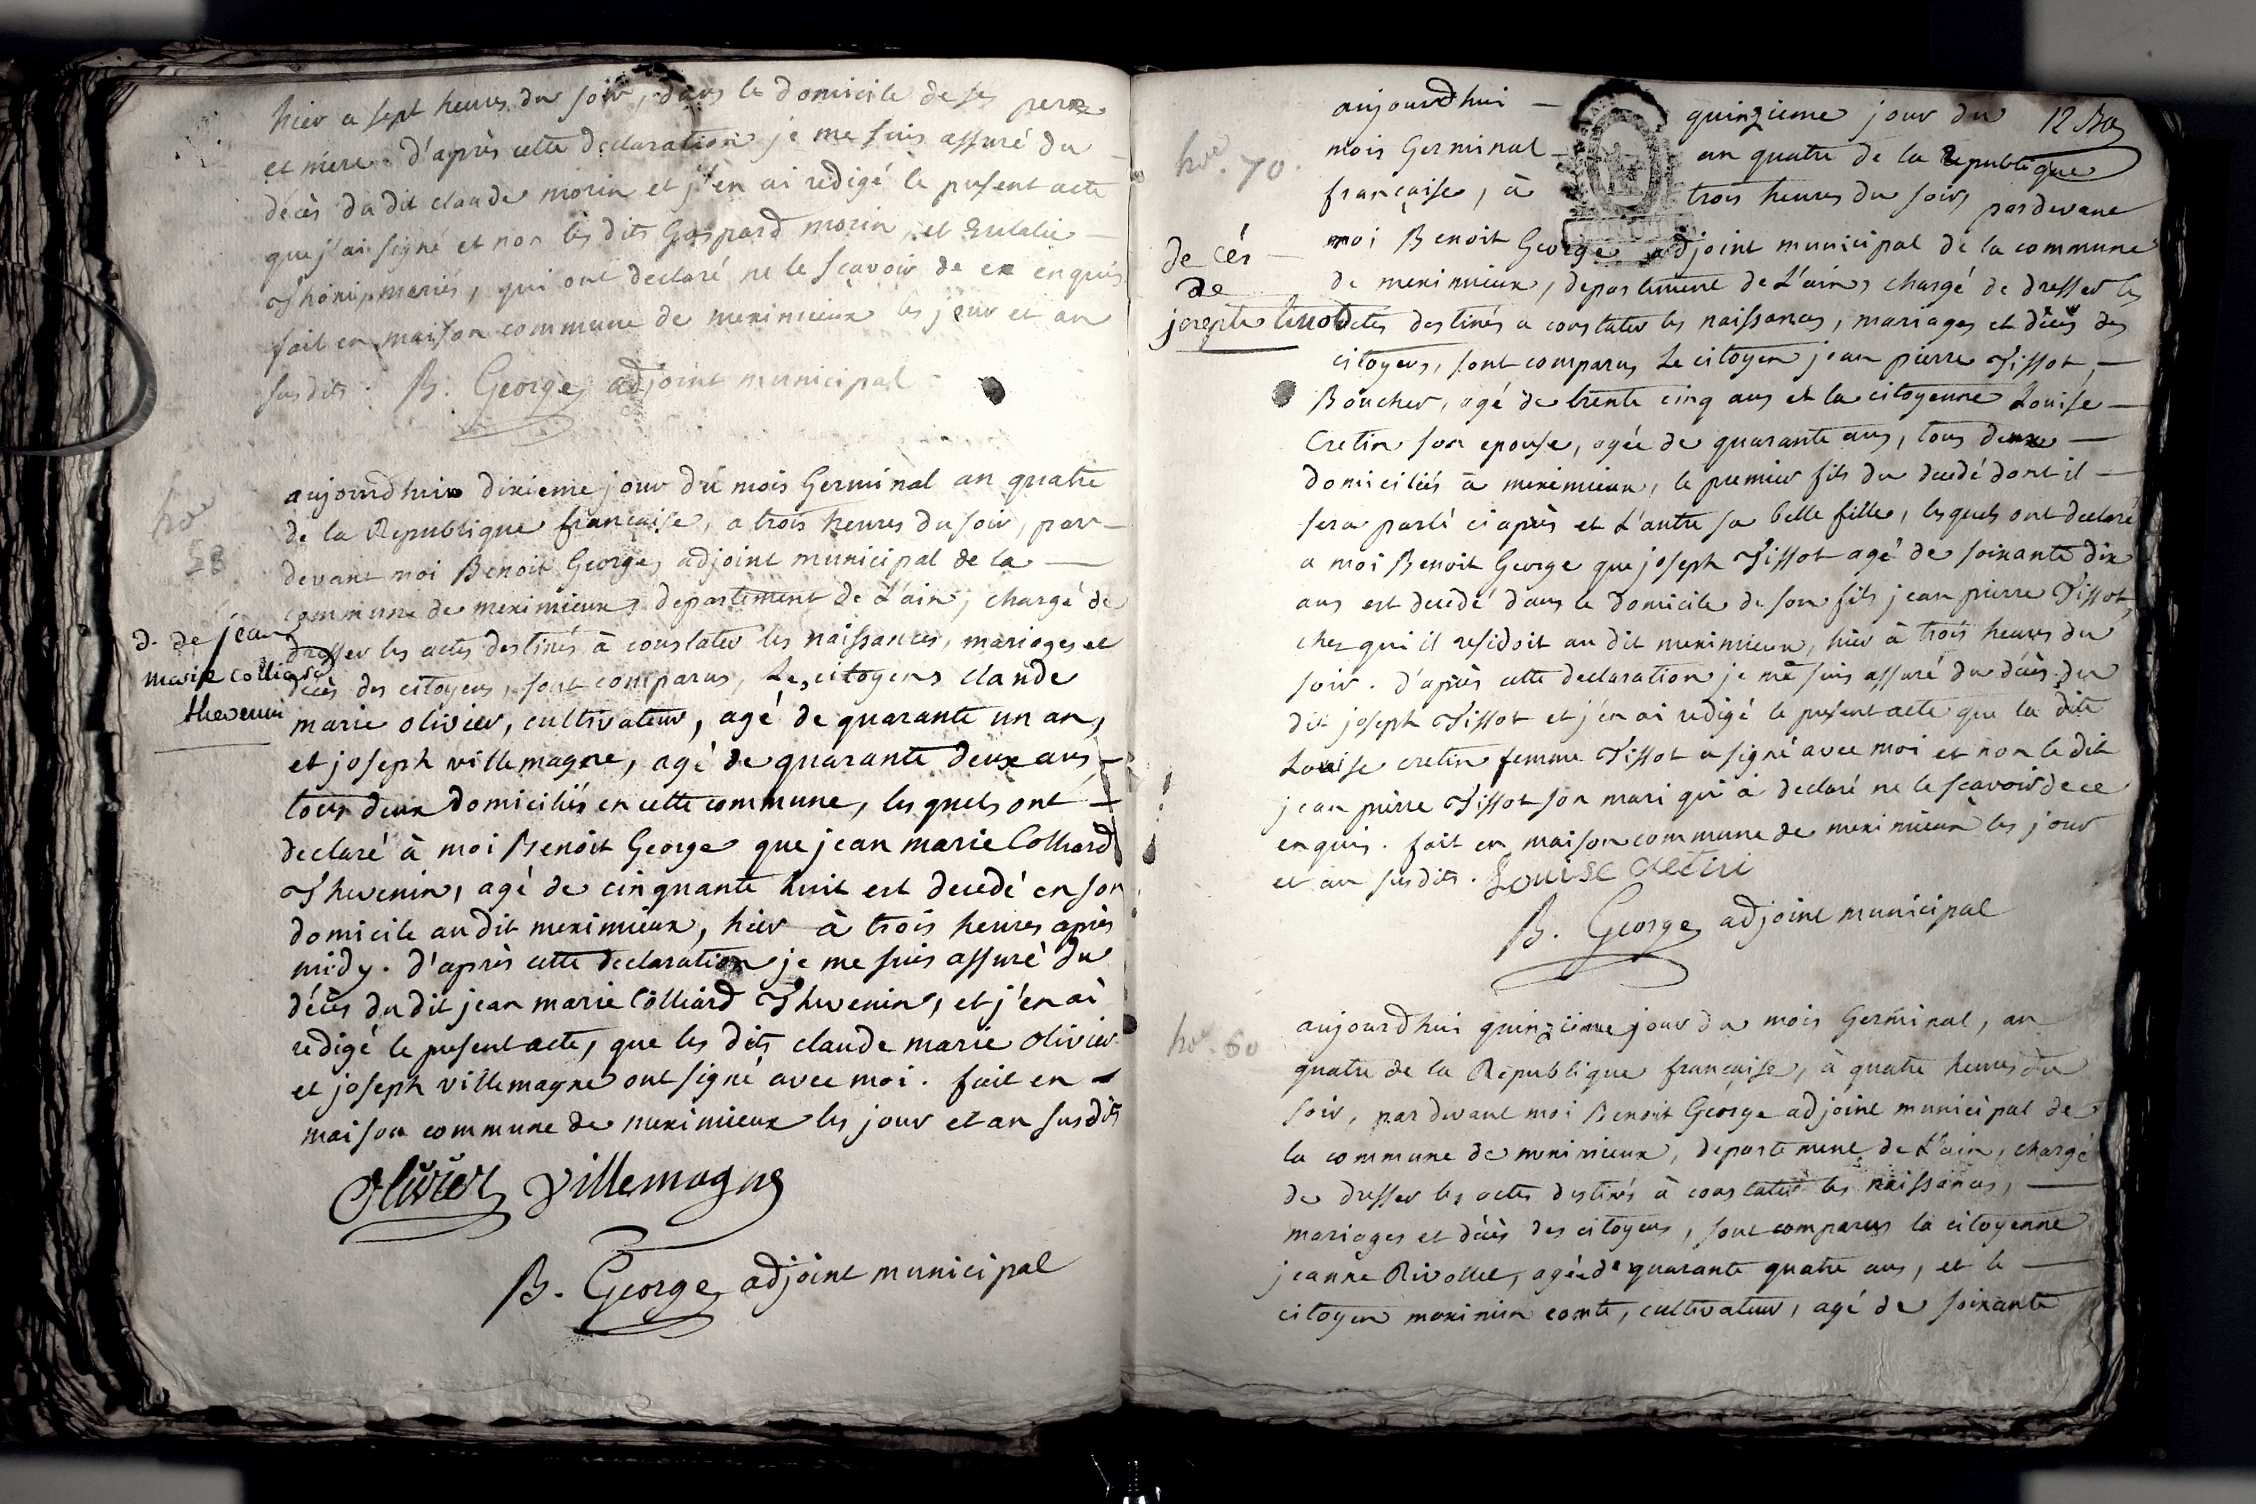 hier a sept heures du soir, dans le domicile de ses pere
et mere. d'après cette declaration je me suis assuré du
décès du dit claude morin et j'en ai redigé le present acte
que j'ai signé et non les dits Gaspard morin, et Eulalie
mariés, qui ont declaré ne le scavoir de ce enquis
fait en maison commune de meximieux les jour et an
susdits. B. George adjoint municipal
hoe
58
d. de jean
marie colliard
thevenin
aujourdhui dixieme jour du mois Germinal an quatre
de la Republique française, a trois heures du soir, par
devant moi Benoit George, adjoint municipal de la
commune de meximieux departement de L'ain, chargé de
dresser les actes destinés à constater les naissances, mariages et
décès des citoyens, sont comparus, Les citoyens claude
marie olivier, cultivateur, agé de quarante un an,
et joseph villemagne, agé de quarante deux ans,
tous deux domiciliés en cette commune, les quels ont
declaré à moi Benoit George que jean marie Colliard
Thevenin, agé de cinquante huit est decedé en son
domicile au dit meximieux, hier à trois heures après
midy. d'après cette declaration je me suis assuré du
décès du dit jean marie Colliard Thevenin, et j'en ai
redigé le present acte, que les dits claude marie olivier
et joseph villemagne ont signé avec moi. fait en
maison commune de meximieux les jour et an susdits
Olivier villemagne
B. George adjoint municipal
12
hoe. 70.
décés
de
joseph tissot
aujourdhui quinzieme jour du
mois Germinal an quatre de la Republique
française, à trois heures du soir, pardevant
moi Benoit George adjoint municipal de la commune
de meximieux, departement de L'ain, chargé de dresser les
actes destinés a constater les naissances, mariages et décès des
citoyens, sont comparus Le citoyen jean pierre Tissot,
Boucher, agé de trente cinq ans et la citoyenne Louise
Cretin son epouse, agée de quarante ans, tous deux
domiciliés à meximieux, le premier fils du decedé dont il
sera parlé ci après et L'autre sa belle fille, lesquels ont declaré
a moi Benoit George que joseph Tissot agé de soixante dix
ans est decedé dans le domicile de son fils jean pierre Tissot,
chez qui il residoit au dit meximieux, hier à trois heures du
soir. d'après cette declaration je me suis assuré du décès du
dit joseph Tissot et j'en ai redigé le present acte que la dite
Louise cretin femme Tissot a signé avec moi et non le dit
jean pierre Tissot son mari qui a declaré ne le scavoir de ce
enquis. fait en maison commune de meximieux les jour
et an susdits. Louise cretin
B. George adjoint municipal
hoe. 60
aujourdhui quinzieme jour du mois Germinal, an
quatre de la Republique française, à quatre heures du
soir, par devant moi Benoit George adjoint municipal de
la commune de meximieux, departement de L'ain, chargé
de dresser les actes destinés à constater les naissances,
mariages et décès des citoyens, sont comparus la citoyenne
jeanne Rivollet, agée de quarante quatre ans, et le
citoyen maximin comte, cultivateur, agé de soixante